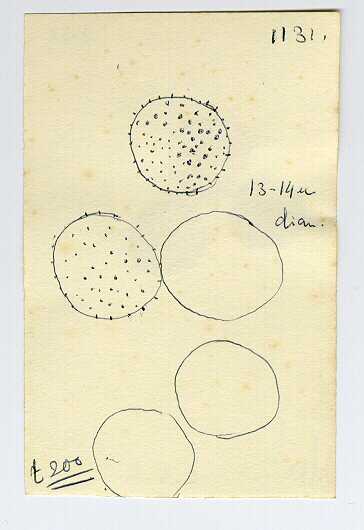 1131.
13-14 u
diam.
200